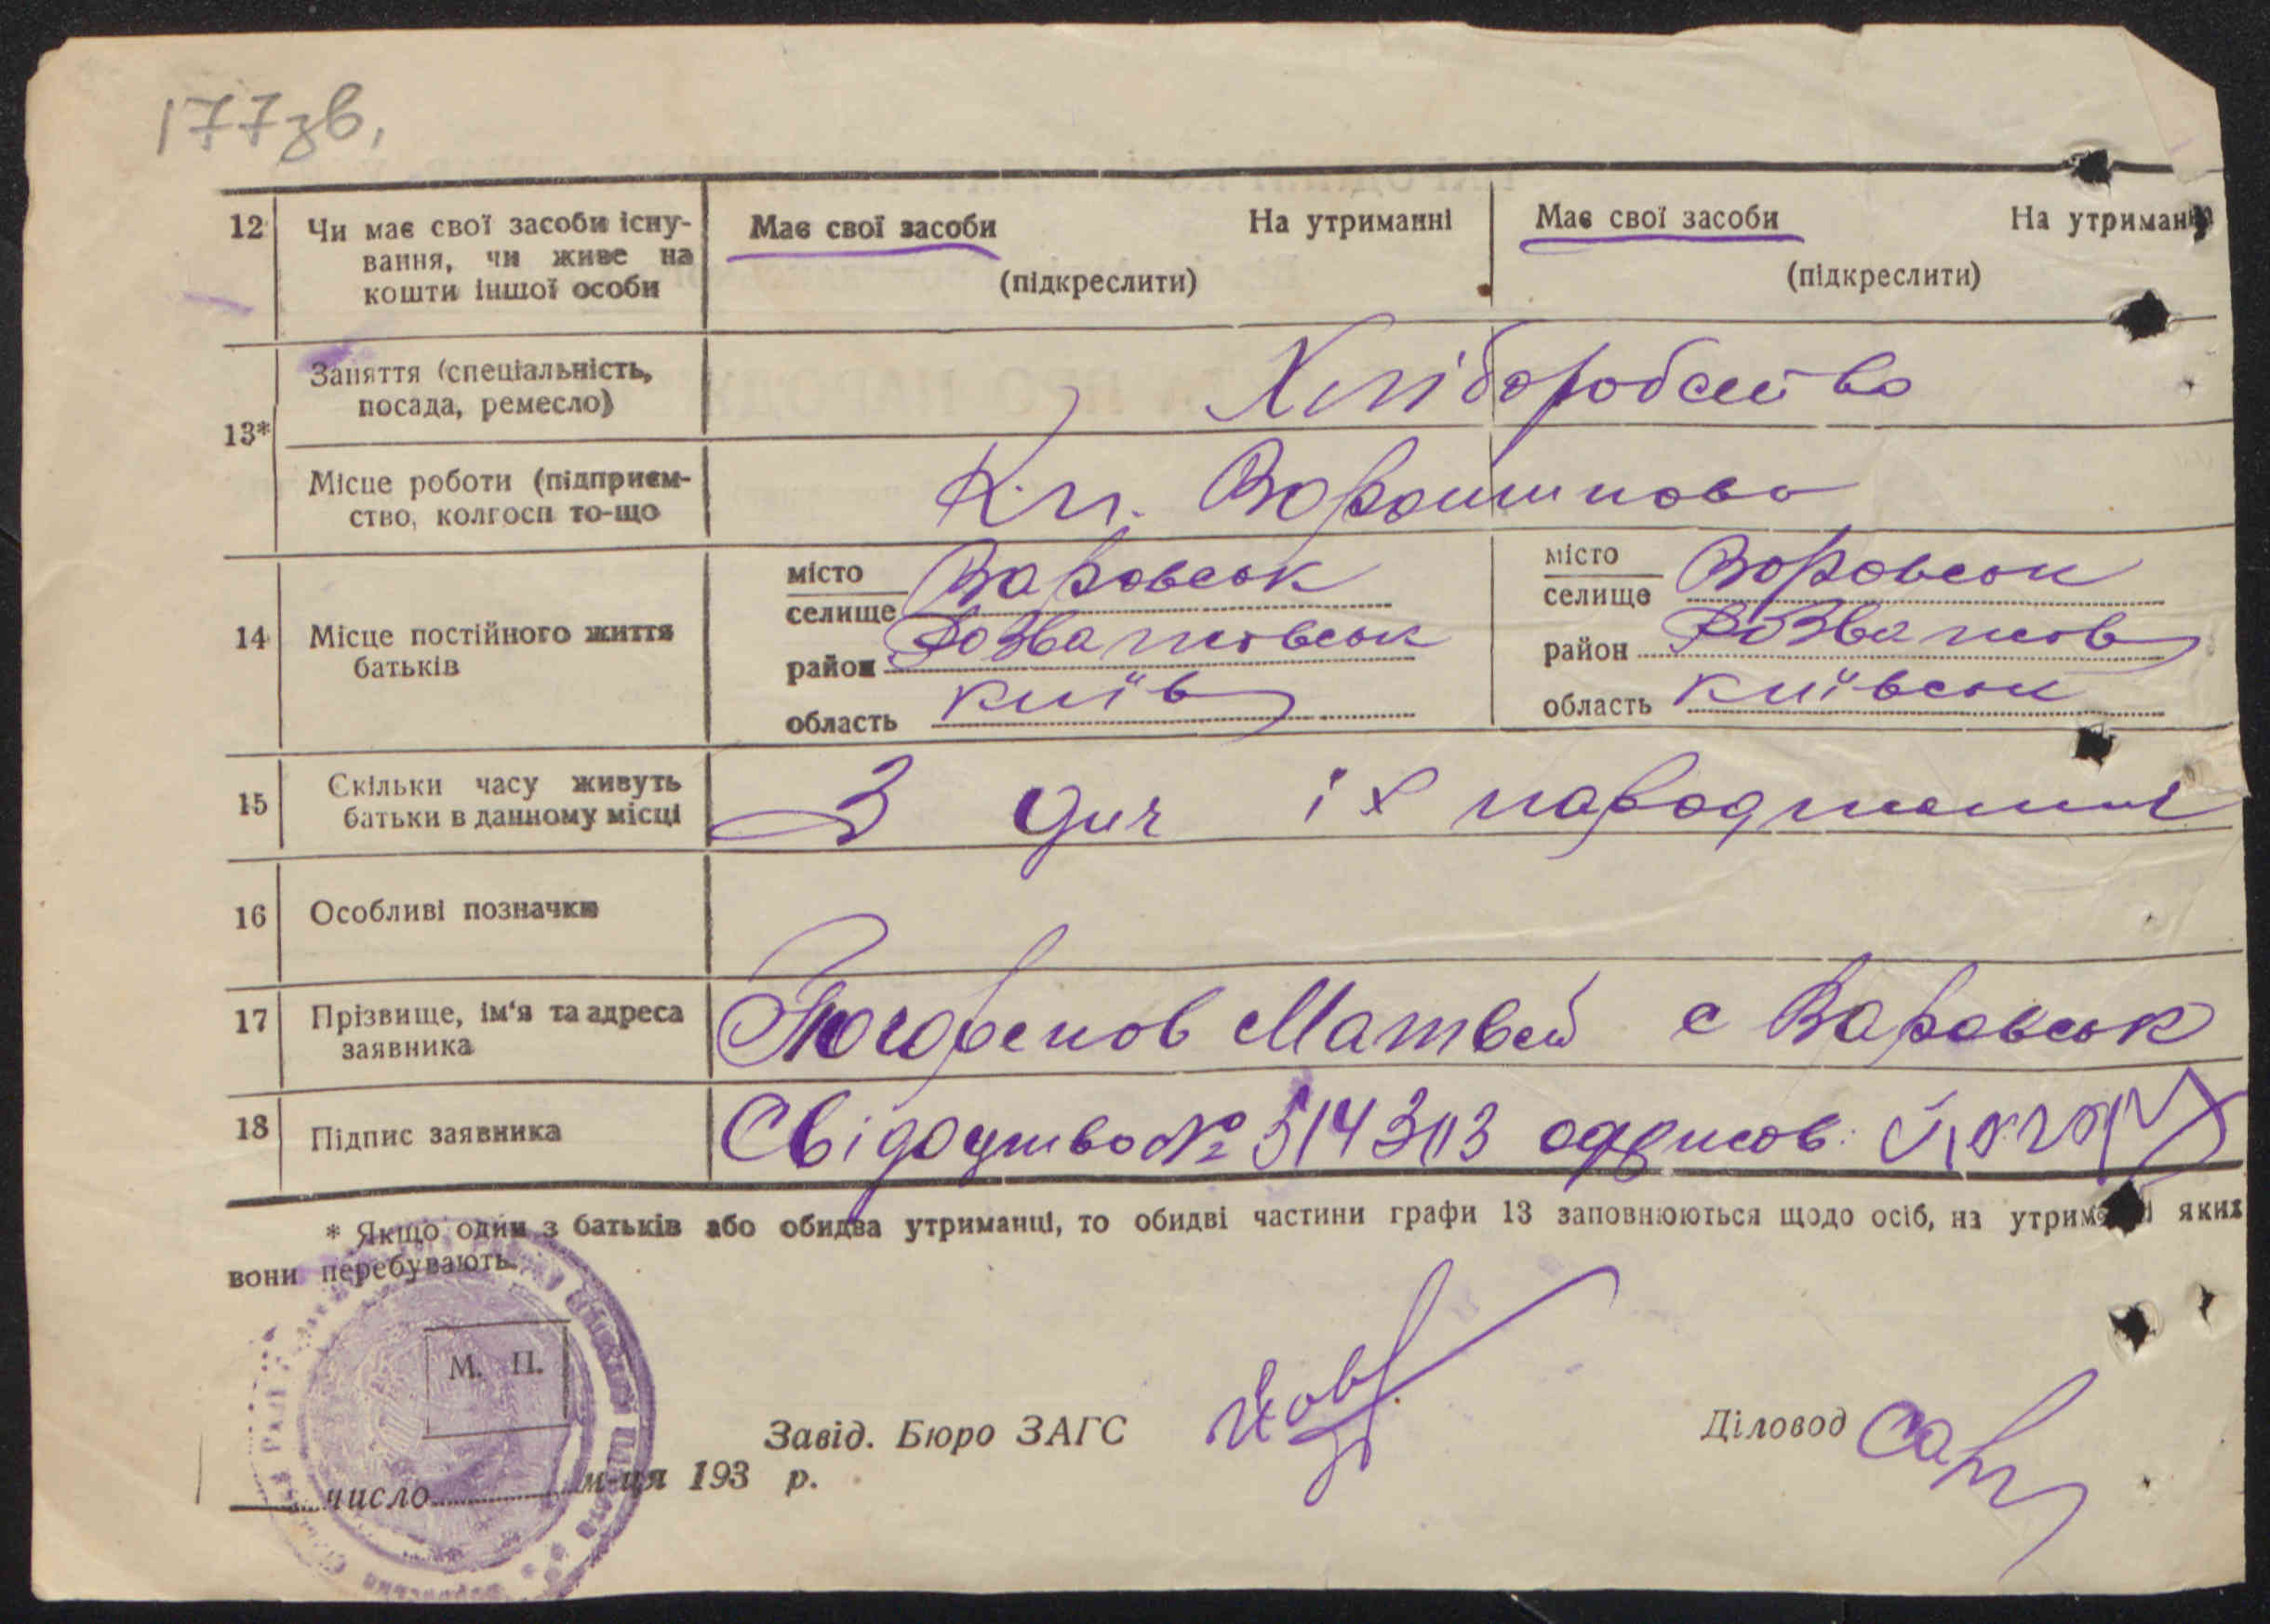 177зв.
12 Чи має свої засоби існу- Має свої засоби На утриманні Має свої засоби На утриманні
вання, чи живе на
кошти іншої особи (підкреслити) (підкреслити)
Заняття (спеціальність,
посада, ремесло) Хліборобство
13*
Місце роботи (підприєм-
ство, колгосп то-що К.г. Ворошилова
14 Місце постійного життя
батьків
місто
селище Варовськ
район Розважевськ
область Київ
місто
селище Воровськ
район Розважев
область Київськ
15 Скільки часу живуть
батьки в данному місці З дня їх народження
16 Особливі позначки
17 Прізвище, ім'я та адреса
заявника Матвей с Варовськ
18 Підпис заявника Свідоцтво №
* Якщо один з батьків або обидва утриманці, то обидві частини графи 13 заповнюються щодо осіб, на яких
вони перебувають.
М. П.
Завід. Бюро ЗАГС
Діловод
число м-ця 193 р.